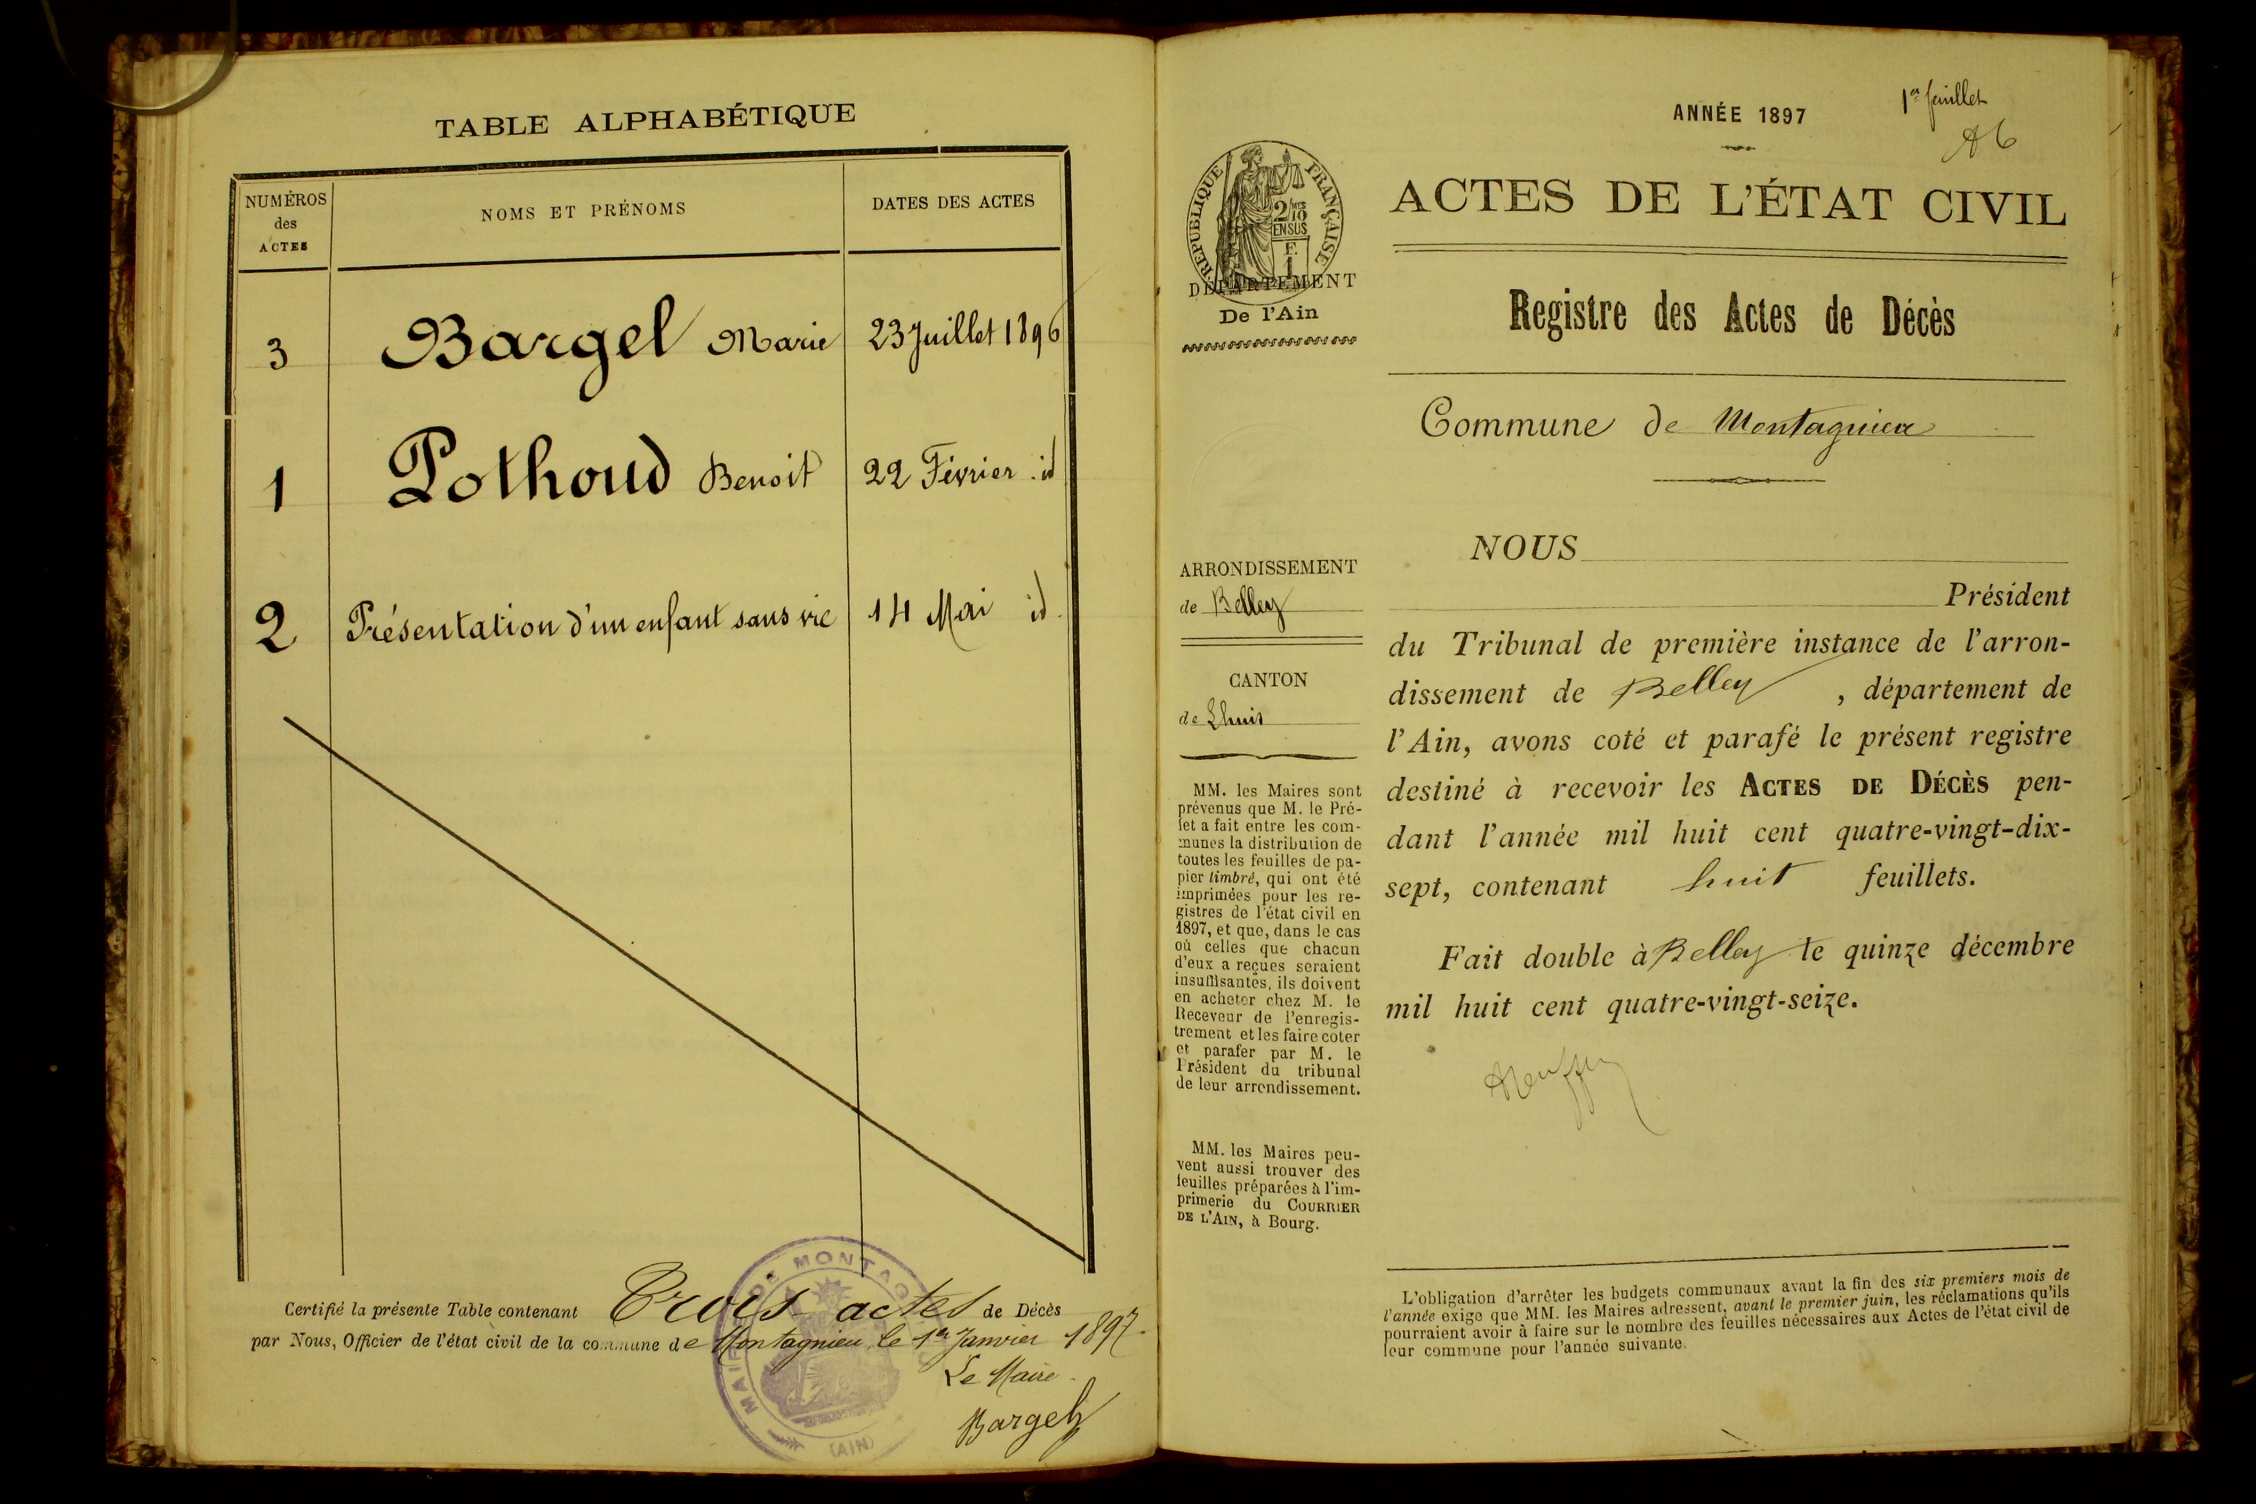 TABLE ALPHABÉTIQUE
NUMÉROS
des
ACTES
NOMS ET PRÉNOMS
DATES DES ACTES
3 Bargel Marie 23 Juillet 1896
1 Pothoud Benoit 22 Février id
2 Présentation d'un enfant sans vie 14 Mai id.
Certifié la présente Table contenant Trois actes de Décès
par Nous, Officier de l'état civil de la commune de Montagnieu, le 1er Janvier 1897.
Le Maire
Bargel
MAIRIE DE MONTAG
(AIN)
1er feuillet
ANNÉE 1897
RÉPUBLIQUE FRANÇAISE
2/10
EN SUS
F.
1
DÉPARTEMENT
De l'Ain
ACTES DE L'ÉTAT CIVIL
Registre des Actes de Décès
Commune de Montagnieu
ARRONDISSEMENT
de Belley
CANTON
de Lhuis
MM. les Maires sont
prévenus que M. le Pré-
fet a fait entre les com-
munes la distribution de
toutes les feuilles de pa-
pier timbré, qui ont été
imprimées pour les re-
gistres de l'état civil en
1897, et que, dans le cas
où celles que chacun
d'eux a reçues seraient
insuffisantes, ils doivent
en acheter chez M. le
Receveur de l'enregis-
trement et les faire coter
et parafer par M. le
Président du tribunal
de leur arrondissement.
MM. les Maires peu-
vent aussi trouver des
feuilles préparées à l'im-
primerie du COURRIER
DE L'AIN, à Bourg.
NOUS
Président
du Tribunal de première instance de l'arron-
dissement de Belley, département de
l'Ain, avons coté et parafé le présent registre
destiné à recevoir les ACTES DE DÉCÈS pen-
dant l'année mil huit cent quatre-vingt-dix-
sept, contenant huit feuillets.
Fait double à Belley le quinze décembre
mil huit cent quatre-vingt-seize.
L'obligation d'arrêter les budgets communaux avant la fin des six premiers mois de
l'année exige que MM. les Maires adressent, avant le premier juin, les réclamations qu'ils
pourraient avoir à faire sur le nombre des feuilles nécessaires aux Actes de l'état civil de
leur commune pour l'année suivante.